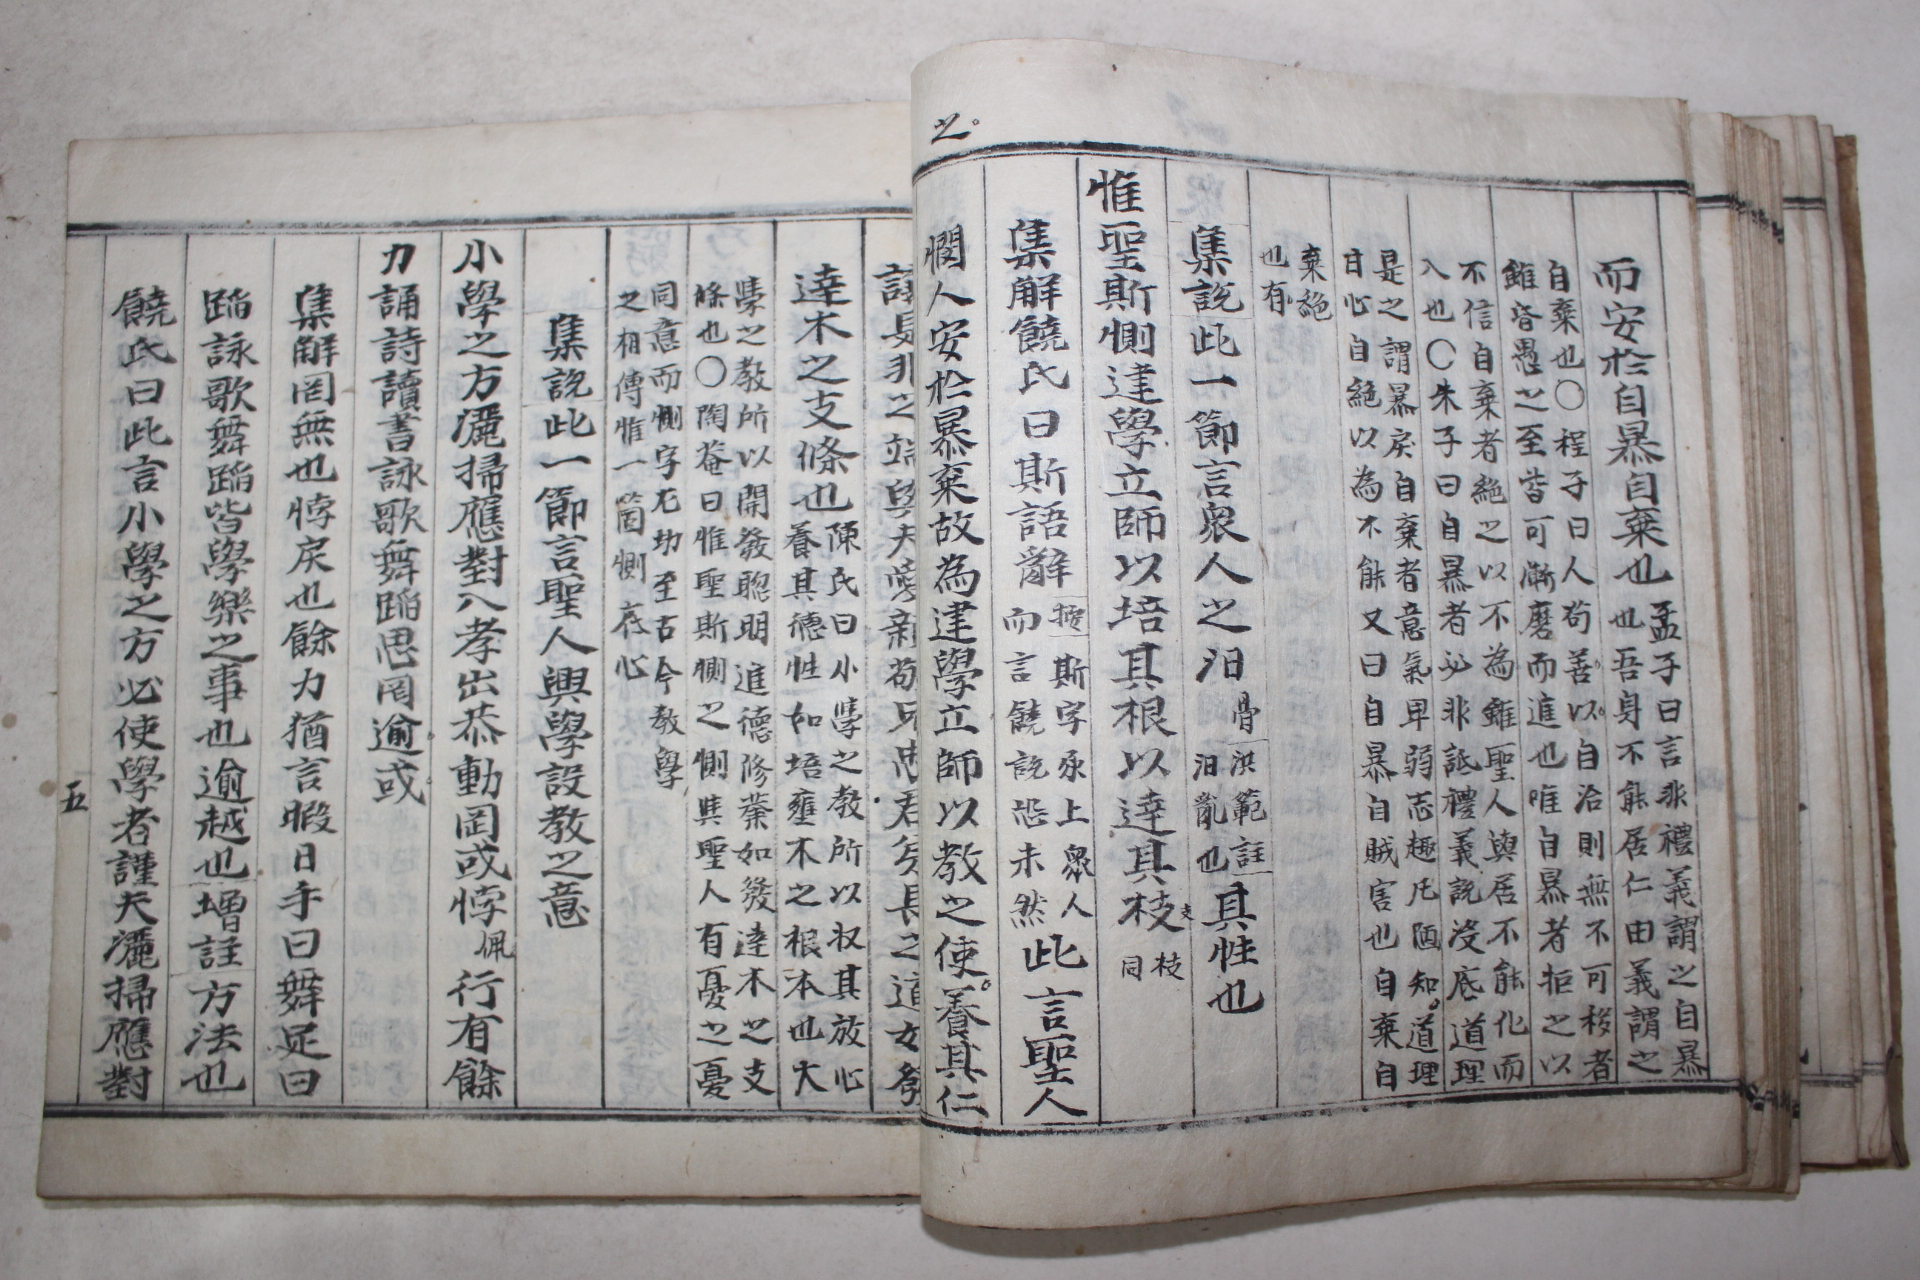 之
而安於自暴自棄也 孟子曰言非禮義謂之自暴
也吾身不能居仁由義謂之
自棄也〇程子曰人苟善以自治則無不可移者
雖昏愚之至皆可漸磨而進也唯自暴者拒之以
不信自棄者絶之以不為雖聖人與居不能化而
入也〇朱子曰自暴者必非詆禮義說没底道理
是之謂暴戾自棄者意氣卑弱志趣凡陋知道理
甘心自絶以為不能又曰自暴自賊害也自棄自
棄絶
也有
集說此一節言衆人之汨 骨 洪範註
汨亂也 其性也
惟聖斯惻建學立師以培其根以達其枝 支 枝
同
集解饒氏曰斯語辭 按斯字承上衆人
而言饒說恐未然 此言聖人
憫人安於暴棄故為建學立師以教之使養其仁
達木之支條也 陳氏曰小學之教所以收其放心
養其德性如培壅木之根本也大
學之教所以開發聰明進德修業如發達木之支
條也〇陶菴曰惟聖斯惻之惻其聖人有憂之憂
同意而惻字尤切至古今教學
之相傳惟一箇惻底心
集說此一節言聖人興學設教之意
小學之方灑掃應對入孝出恭動罔或悖 佩 行有餘
力誦詩讀書詠歌舞蹈思罔逾或
集解罔無也悖戾也餘力猶言暇日手曰舞足曰
蹈詠歌舞蹈皆學樂之事也逾越也增註方法也
饒氏曰此言小學之方必使學者謹夫灑掃應對
五